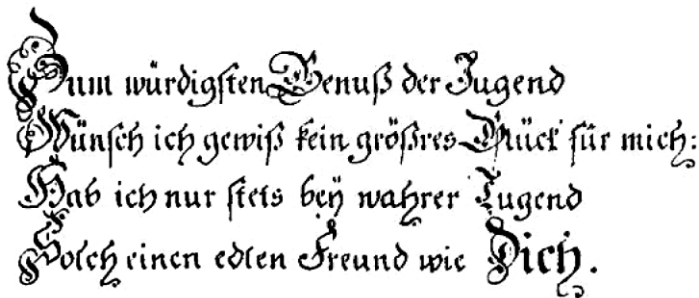 Zum würdigsten Genuß der Jugend
Wünsch ich gewiß kein größres Glück für mich:
Hab ich nur stets beÿ wahrer Tugend
Solch einen edlen Freund wie Dich.